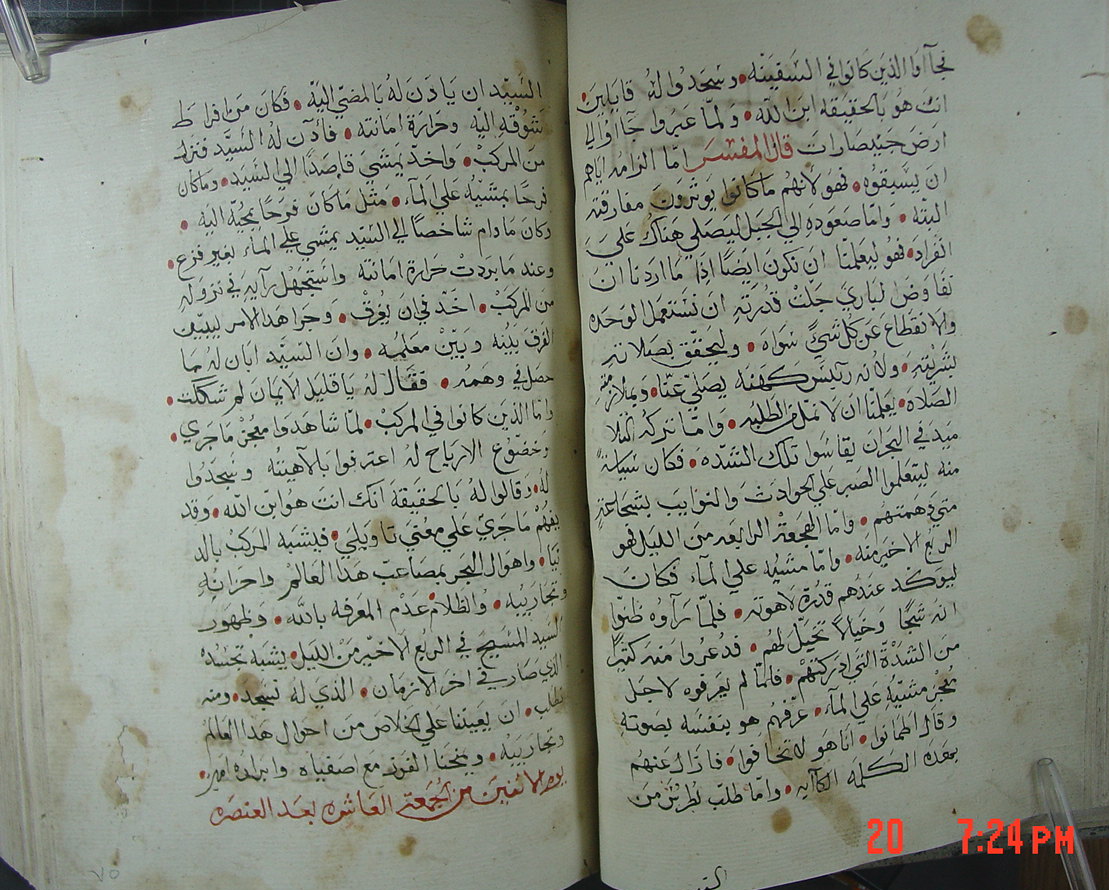 فجآ اوا الذين كانوا في السفينه • وسجدوا له قايلين •
انت هو بالحقيقه ابن الله • ولما عبروا جااوا الي
ارض جينصارات قال المفسر اما الزامه اياهم
ان يسبقوه • فهو لانهم ماكانوا يوثرون مفارقته
البته • واما صعوده الي الجبل ليصلي هناك علي
انفراد • فهو ليعلمنا ان نكون ايضًا اذا ما اردنا ان
نفاوض لباري جلت قدرته ان نستعمل الوحده
والانقطاع عن كل شي سواه • وليحقق بصلاته
بشريته • ولانه رييس كهنه يصلي عنا • وبملازمته
الصلاه • يعلمنا ان لا نمل من الطلبه • واما تركه التلا
ميد في البحران يقاسوا تلك الشده • فكان سياسة
منه ليتعلموا الصبر علي الحوادث والنوايب بشجاعة
متي دهمتهم • واما الهجعة الرابعه من الليل فهو
الربع الاخير منه • واما مشيه علي المآء فكان
ليوكد عندهم قدرة لاهوته • فلما رآوه ظنوا
انه شبحًا وخيالًا تخيل لهم • قد عروا منه كثيرًا
من الشدة التي ادركتهم • فلما لم يعرفوه لاجل
معجز مشيه علي المآء • عرفهم هو بنفسه بصوته
وقال اطمانوا • انا هو لا تخافوا • فازال عنهم
بهذه الكلمه الكآبه • واما طلب بطرس من
السيد ان ياذن له بالمضي اليه • فكان من افراط
تشوقه اليه وحرارة امانته • فاذن له السيد فنزل
من المركب • واخذ يمشي قاصدًا الي السيد • وماكان
فرحًا بمشيه علي المآء • مثل ما كان فرحًا بمجيه اليه •
وكان مادام شاخصًا الي السيد يمشي علي الماء بغير فزع •
وعند ما بردت حرارة امانته واستجهل رآيه في نزوله
من المركب • اخذ في ان يغرق • وجرا هذا الامر ليبين
الفرق بينه وبين معلميه • وان السيد ابان له ما
حصل في وهمه • فقال له يا قليل الايمان لم شككت •
واما الذين كانوا في المركب • لما شاهدوا معجز ماجري •
وخضوع الارياح له اعترفوا بالاهيته وسجدوا
له • وقالوا له بالحقيقه انك انت هو ابن الله • وقد
يفهم ما جري علي معني تاويلي • فيشبه المركب بالد
نيا • واهوال البحر بمصاعب هذا العالم واحزانه
وتجاريبه • والظلام عدم المعرفه بالله • وظهور
السيد المسيح في الربع الاخير من الليل • يشبه تجسده
الذي صار في اخر الازمان • الذي له نسجد • ومنه
نطلب • ان يعيننا علي الخلاص من احوال هذا العالم
وتجاريبه • ويمنحنا الفوز مع اصفياه وابراره امين •
يوم الاثنين من الجمعة العاشره بعد العنصره
٧٥
20 7:24 PM